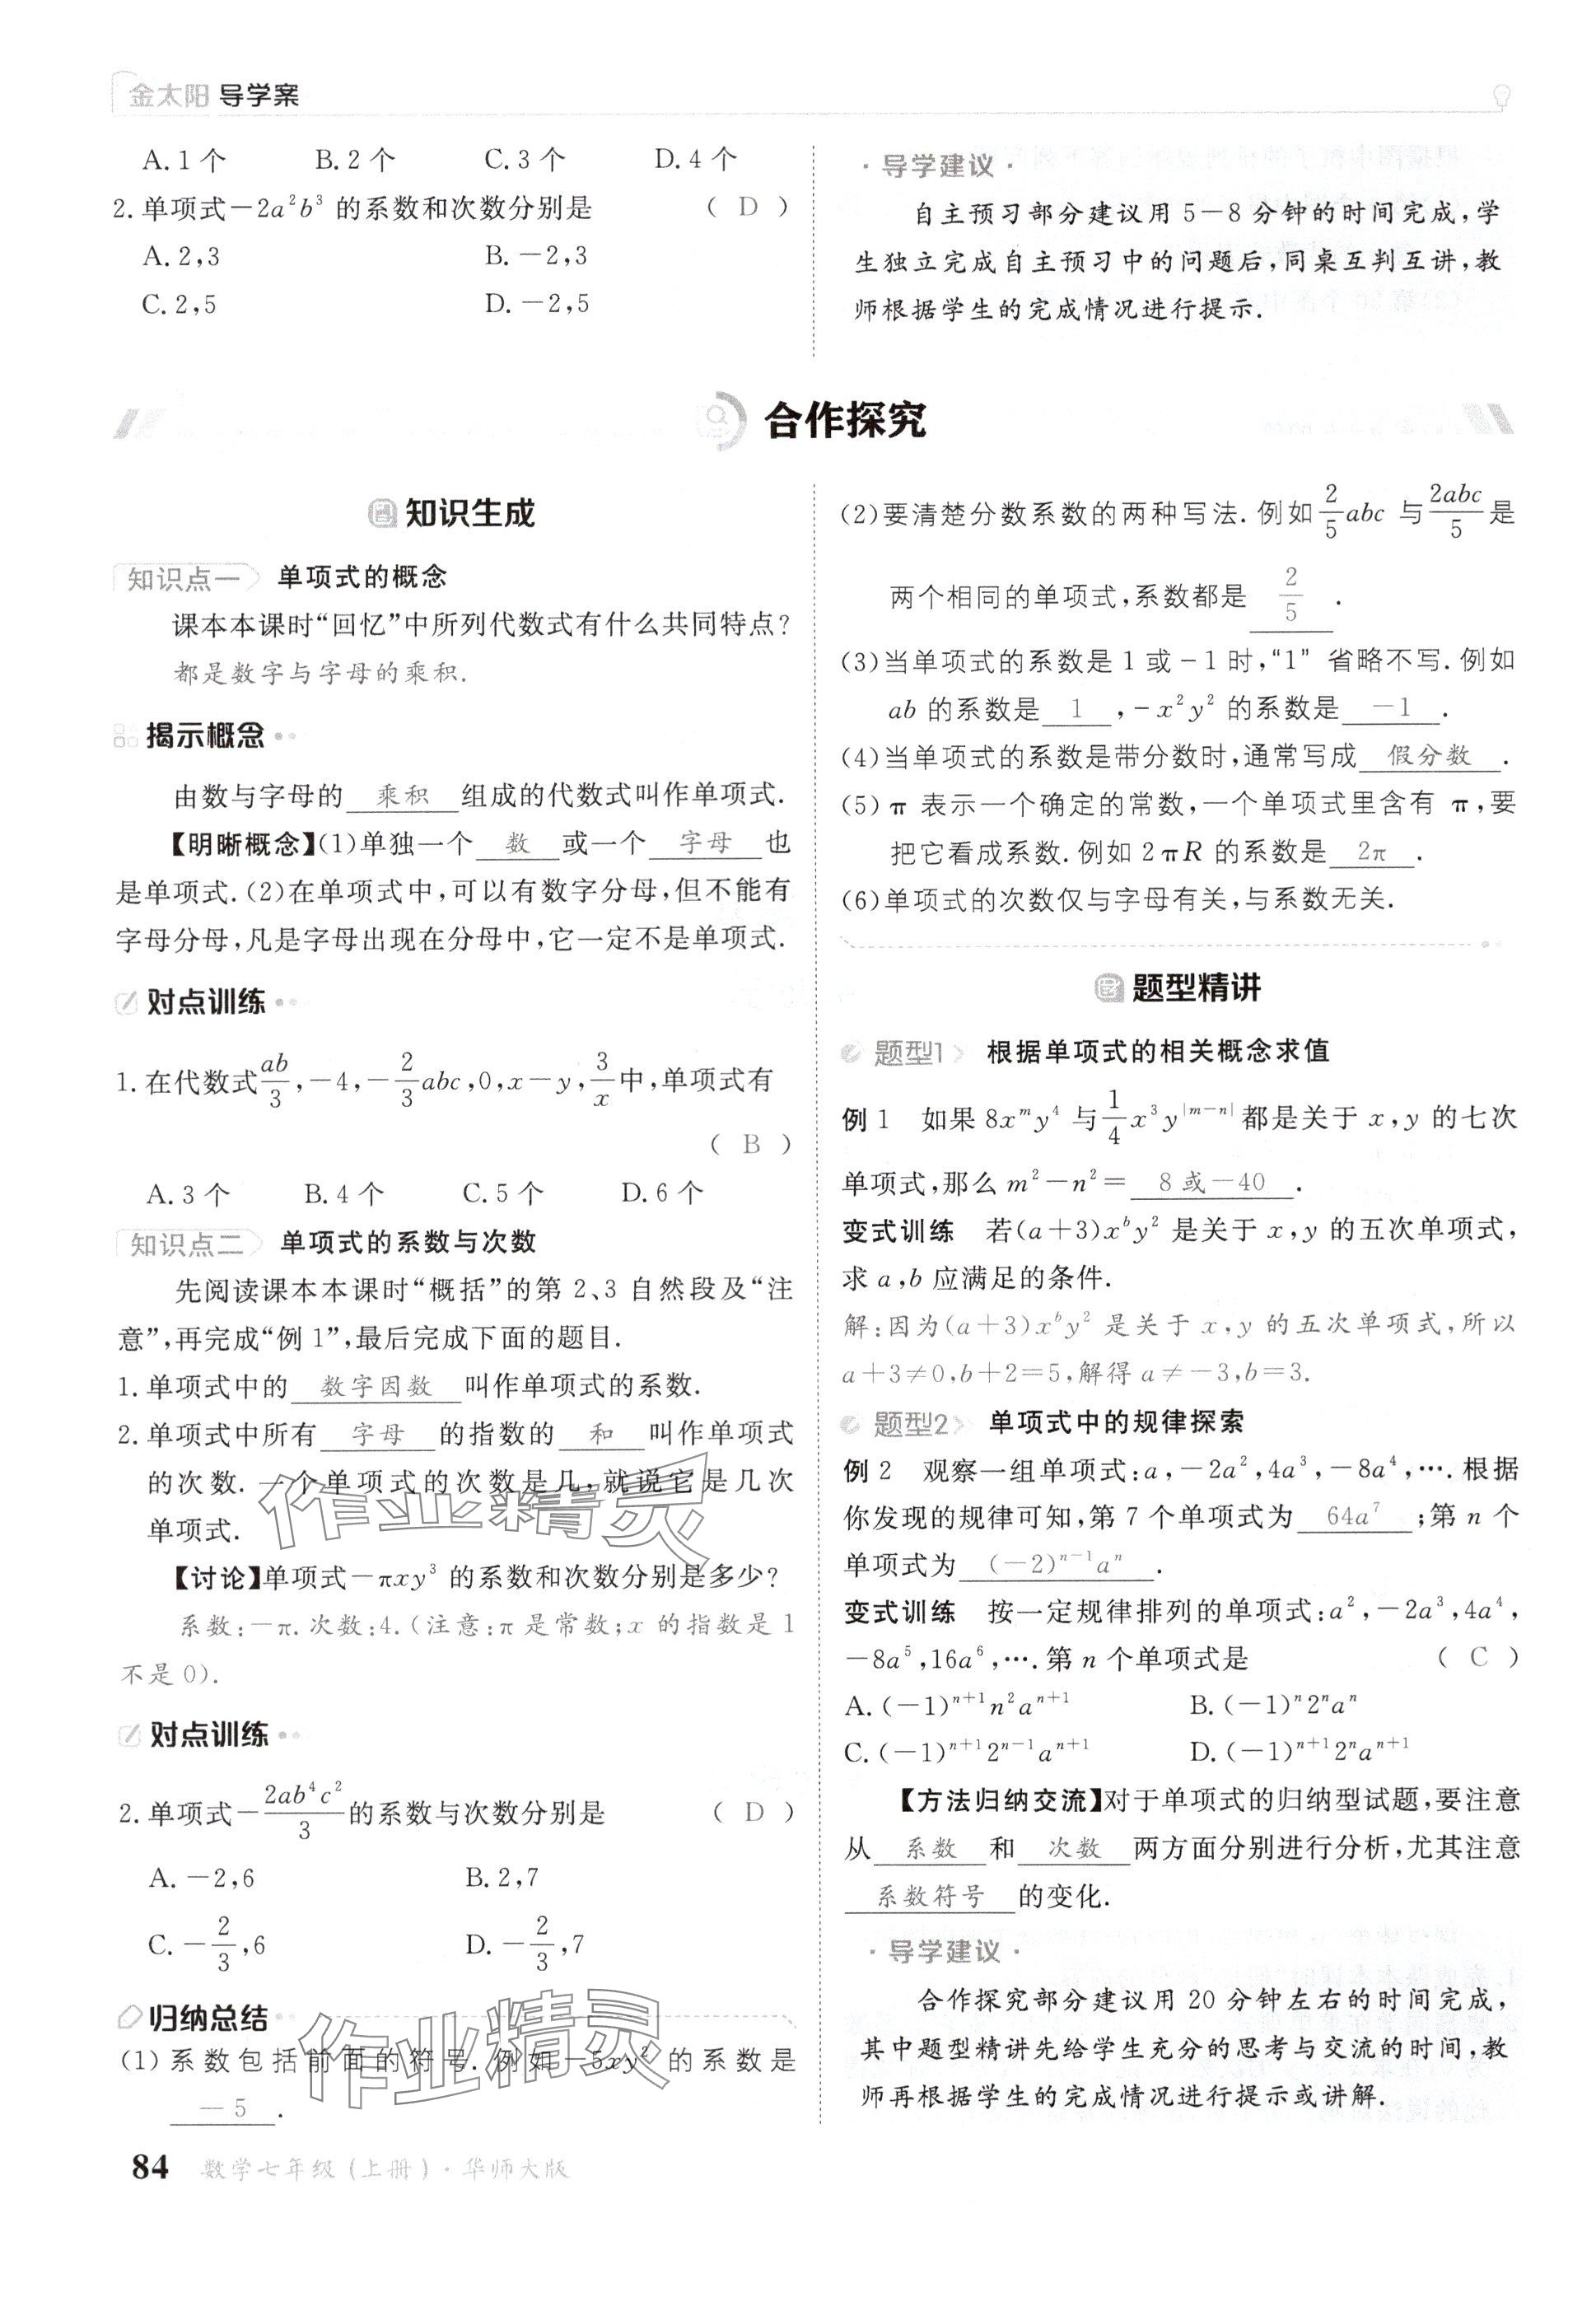 金太阳 导学案
A. 1个 B. 2个 C. 3个 D. 4个
2. 单项式-2a²b³ 的系数和次数分别是 ( D )
A. 2,3 B. -2,3
C. 2,5 D. -2,5
· 导学建议 ·
自主预习部分建议用 5-8 分钟的时间完成,学
生独立完成自主预习中的问题后,同桌互判互讲,教
师根据学生的完成情况进行提示.
合作探究
知识生成
知识点一 单项式的概念
课本本课时“回忆”中所列代数式有什么共同特点?
都是数字与字母的乘积.
揭示概念
由数与字母的 乘积 组成的代数式叫作单项式.
【明晰概念】(1)单独一个 数 或一个 字母 也
是单项式.(2)在单项式中,可以有数字分母,但不能有
字母分母,凡是字母出现在分母中,它一定不是单项式.
对点训练
1. 在代数式ab/3,-4,-2/3abc,0,x-y,3/x中,单项式有
( B )
A. 3个 B. 4个 C. 5个 D. 6个
知识点二 单项式的系数与次数
先阅读课本本课时“概括”的第 2、3 自然段及“注
意”,再完成“例 1”,最后完成下面的题目.
1. 单项式中的 数字因数 叫作单项式的系数.
2. 单项式中所有 字母 的指数的 和 叫作单项式
的次数. 一个单项式的次数是几,就说它是几次
单项式.
【讨论】单项式-πxy³ 的系数和次数分别是多少?
系数:-π. 次数:4. (注意:π 是常数;x 的指数是 1
不是 0).
对点训练
2. 单项式-2ab⁴c²/3的系数与次数分别是 ( D )
A. -2,6 B. 2,7
C. -2/3,6 D. -2/3,7
归纳总结
(1) 系数包括前面的符号. 例如-5xy² 的系数是
-5 .
(2)要清楚分数系数的两种写法. 例如2/5abc 与2abc/5是
两个相同的单项式,系数都是 2/5 .
(3)当单项式的系数是 1 或-1 时,“1” 省略不写. 例如
ab 的系数是 1 ,-x²y² 的系数是 -1 .
(4)当单项式的系数是带分数时,通常写成 假分数 .
(5)π 表示一个确定的常数,一个单项式里含有 π,要
把它看成系数. 例如 2πR 的系数是 2π .
(6)单项式的次数仅与字母有关,与系数无关.
题型精讲
题型1 根据单项式的相关概念求值
例 1 如果 8xᵐy⁴ 与1/4x³y^|m-n|都是关于 x,y 的七次
单项式,那么 m²-n²= 8或-40 .
变式训练 若(a+3)xᵇy² 是关于 x,y 的五次单项式,
求 a,b 应满足的条件.
解:因为(a+3)xᵇy² 是关于 x,y 的五次单项式,所以
a+3≠0,b+2=5,解得 a≠-3,b=3.
题型2 单项式中的规律探索
例 2 观察一组单项式:a,-2a²,4a³,-8a⁴,…. 根据
你发现的规律可知,第 7 个单项式为 64a⁷ ;第 n 个
单项式为 (-2)ⁿ⁻¹aⁿ .
变式训练 按一定规律排列的单项式:a²,-2a³,4a⁴,
-8a⁵,16a⁶,…. 第 n 个单项式是 ( C )
A. (-1)ⁿ⁺¹n²aⁿ⁺¹ B. (-1)ⁿ2ⁿaⁿ
C. (-1)ⁿ⁺¹2ⁿ⁻¹aⁿ⁺¹ D. (-1)ⁿ⁺¹2ⁿaⁿ⁺¹
【方法归纳交流】对于单项式的归纳型试题,要注意
从 系数 和 次数 两方面分别进行分析,尤其注意
系数符号 的变化.
· 导学建议 ·
合作探究部分建议用 20 分钟左右的时间完成,
其中题型精讲先给学生充分的思考与交流的时间,教
师再根据学生的完成情况进行提示或讲解.
作业精灵
作业精灵
84 数学七年级(上册)·华师大版